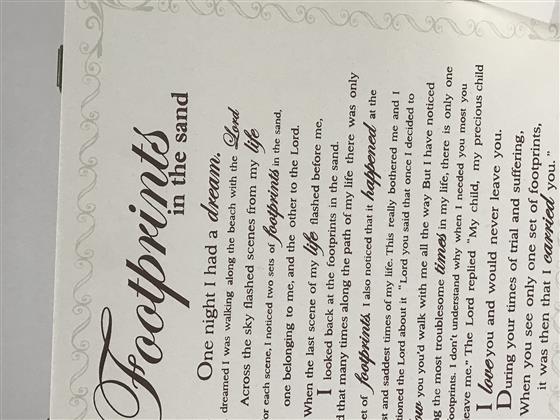 Footprints
in the sand
One night I had a dream.
dreamed I was walking along the beach with the Lord
Across the sky flashed scenes from my life
or each scene, I noticed two sets of footprints in the sand,
one belonging to me, and the other to the Lord.
When the last scene of my life flashed before me,
I looked back at the footprints in the sand.
d that many times along the path of my life there was only
et of footprints. I also noticed that it happened at the
st and saddest times of my life. This really bothered me and I
tioned the Lord about it "Lord you said that once I decided to
you you'd walk with me all the way But I have noticed
g the most troublesome times in my life, there is only one
ootprints. I don't understand why when I needed you most you
eave me." The Lord replied "My child, my precious child
I love you and would never leave you.
During your times of trial and suffering,
When you see only one set of footprints,
it was then that I carried you."